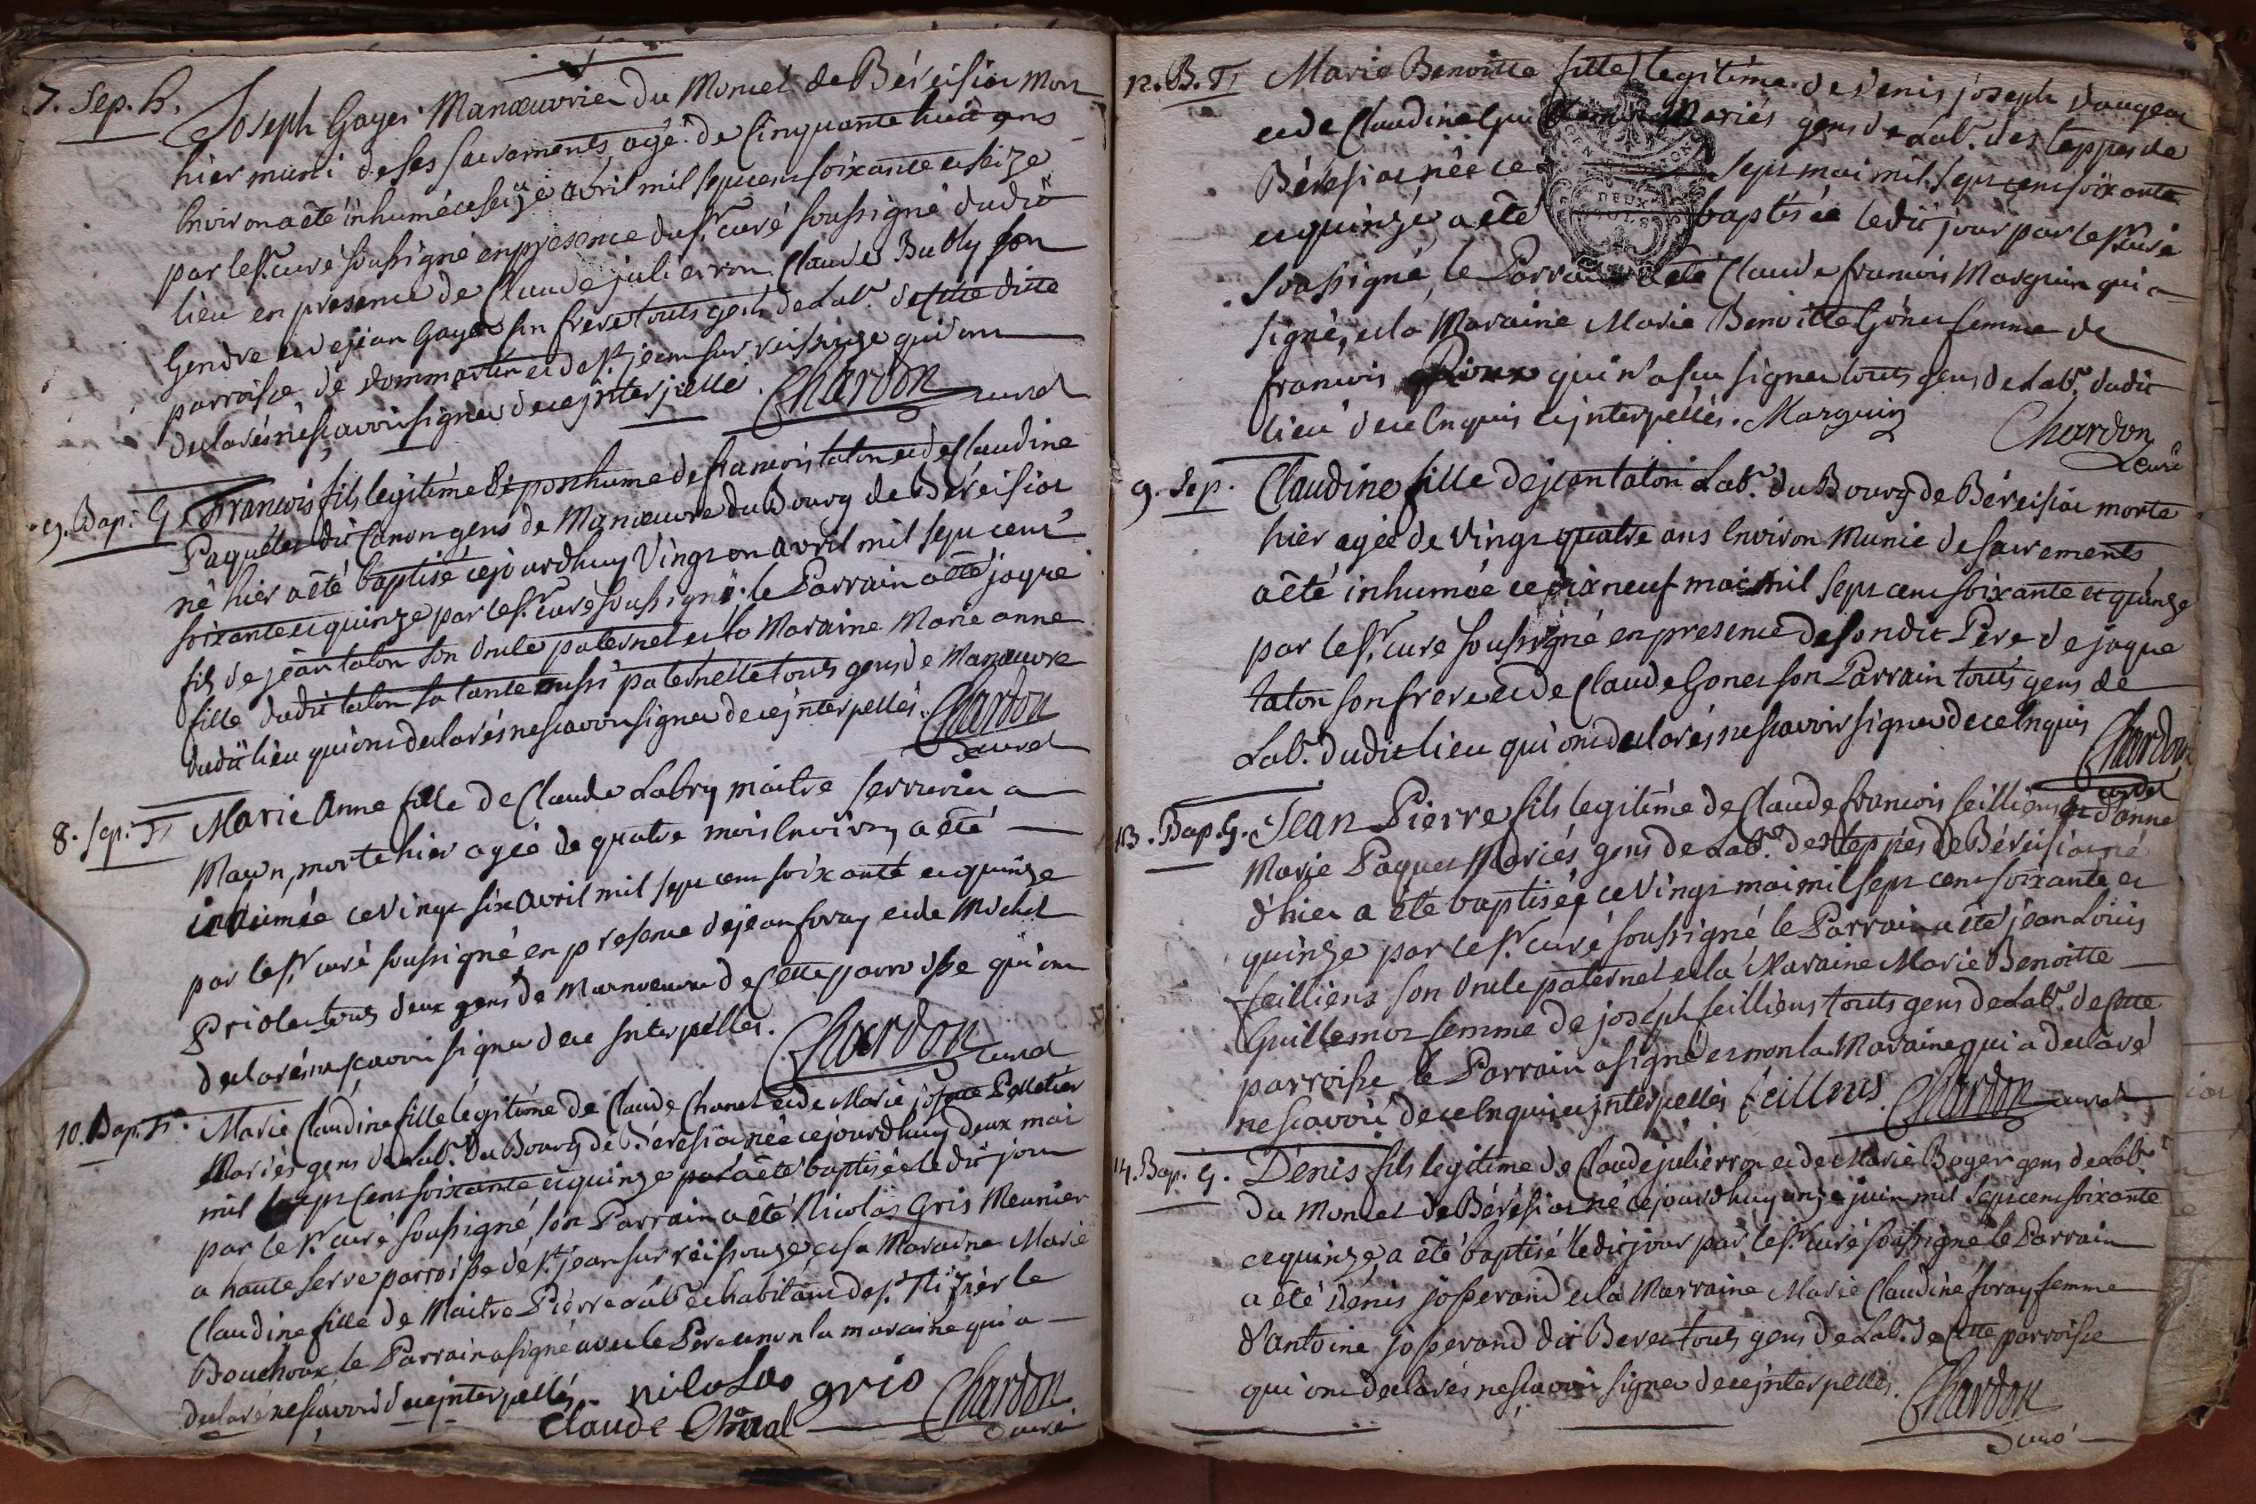 7. Sep. h. Joseph Gayer Manœuvrier du Moncel de Béreisiat mort
hier muni de ses sacraments agé de Cinquante huit ans
Environ a été inhumé ce seize avril mil sept cent soixante et seize
par le Sr. curé soussigné en presence du Sr. curé soussigné dudit
lieu en presence de Claude julierron Claude Bubly son
Gendre et de jean Gayer son frere touts gens de Labr. de cette ditte
parroisse de dommartin et de St. jean sur reissouze qui ont
declarés ne sçavoir signer de ce jnterpellé. Chardon curé
9. Bap. G. Francois fils legitime & posthume de francois talon et de Claudine
Paquelet dit Canon gens de Manœuvre du Bourg de Béreisiat
né hier a été baptisé cejourdhuy Vingt on avril mil sept cent
soixante et quinze par le Sr. curé soussigné. le Parrain a été jaque
fils de jean talon son oncle paternel et la Maraine Marie anne
fille dudit talon sa tante aussi paternelle touts gens de Manœuvre
dudit lieu qui ont declarés ne sçavoir signer de ce jnterpellés. Chardon
curé
8. Sep. F. Marie Anne fille de Claude Labry maitre serrurier a
Macon, morte hier agée de quatre mois Environ, a été
inhumée ce Vingt six avril mil sept cent soixante et quinze
par le Sr. curé soussigné en presence de jean foray et de Michel
Priolet touts deux gens de Manœuvre de Cette parroisse qui ont
declarés ne sçavoir signer de ce jnterpellés. Chardon curé
10. Bap. F. Marie Claudine fille légitime de Claude Chanel et de Marie josette Pelletier
Mariés gens de Labr. du Bourg de Béresiat née cejourdhuy deux mai
mil sept Cent soixante et quinze a été baptisée le dit jour
par le Sr. curé soussigné, son Parrain a été Nicolas Gris Meunier
a haute serve parroisse de St. jean sur reissouze, et sa Maraine Marie
Claudine fille de Maitre Pierre habitant de St. Trivier le
Bouchoux, le Parrain a signé avec le Pere et non la maraine qui a
declaré ne sçavoir de ce jnterpellés. nicolas gris Chardon
claude Chanal curé
12. B. F. Marie Benoitte fille legitime de denis joseph dangeat
et de Claudine Mariés gens de Labr. des teppes de
Béresiat née ce sept mai mil sept cent soixante
et quinze, a été baptisée ledit jour par le Sr. curé
DEUX
soussigné, le Parrain a été Claude francois Marguin qui a
signé, et la Maraine Marie Benoitte Gonet femme de
francois qui n'a sçu signer touts gens de Labr. dudit
lieu de ce Enquis et jnterpellés. Marguin Chardon
curé
9. Sep. Claudine fille de jean talon Labr. du Bourg de Béreisiat morte
hier agée de Vingt quatre ans Environ Munie de sacrements
a été inhumée ce dix neuf mai mil sept cent soixante et quinze
par le Sr. curé soussigné en presence de son dit Pere de jaque
talon son frere et de Claude Gonet son Parrain touts gens de
Labr. dudit lieu qui ont declarés ne sçavoir signer de ce Enquis Chardon
curé
13. Bap. G. Jean Pierre fils legitime de Claude francois seilliens et d'anne
Marie Paquet Mariés gens de Labr. des teppes de Béreisiat né
d'hier a été baptisé ce Vingt mai mil sept cent soixante et
quinze par le Sr. curé soussigné le Parrain a été jean Louis
seilliens son oncle paternel et la Maraine Marie Benoitte
Guillemot femme de joseph seilliens touts gens de Labr. de Cette
parroisse le Parrain a signé et non la Maraine qui a declaré
ne sçavoir de ce Enquis et jnterpellés seilliens. Chardon curé
14. Bap. G. Denis fils legitime de Claude julierron et de Marie Boyer gens de Labr.
du Moncel de Béresiat né cejourdhuy onze juin mil sept cent soixante
et quinze, a été baptisé ledit jour par le Sr. curé soussigné le Parrain
a été denis josserand et la Marraine Marie Claudine foray femme
d'antoine josserand dit Beret touts gens de Labr. de Cette parroisse
qui ont declarés ne sçavoir signer de ce jnterpellés. Chardon
curé